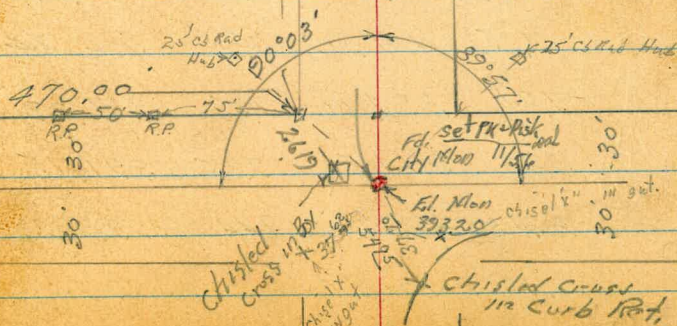 25' CS Rad
Hub
90°03'
89°57'
25' CS Rad Hub
470.00
50'
75'
R.P.
R.P.
30'
26.19
Fd.
set PK & Disk
City Mon
11/56
30'
El. Mon
393.20
chisel "x" in gut.
30'
30'
Chisled
Cross in Bx
Chisel X
in gut
37.62
Chisled Cross
in Curb Ret.